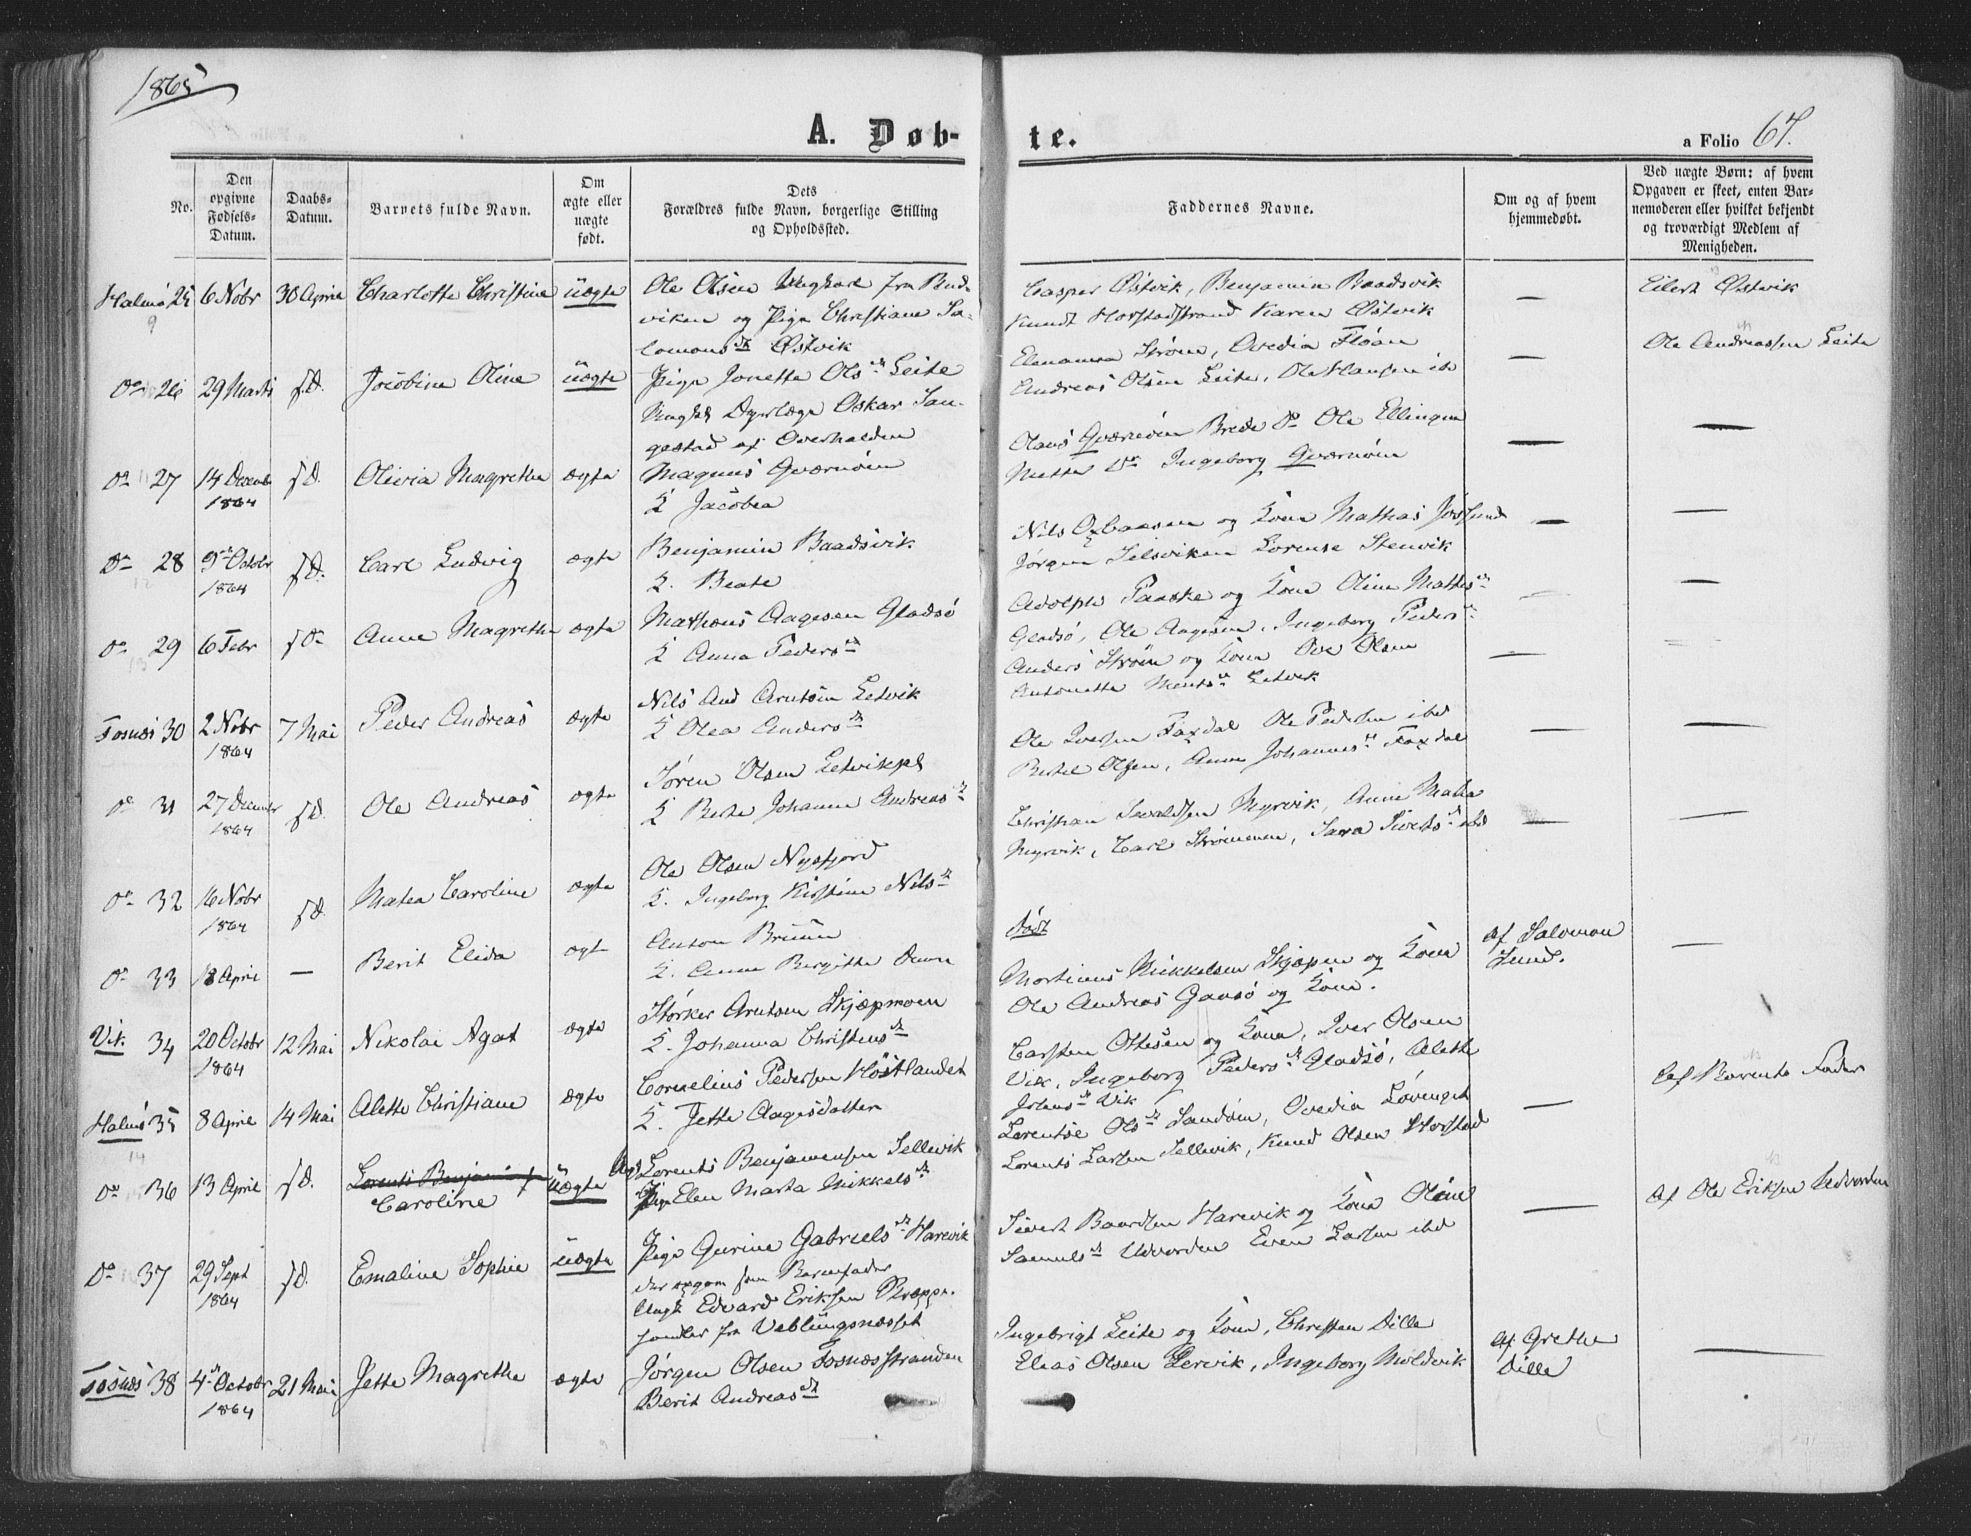 1865
A. Døb-
te.
a Folio 67.
No.
Den opgivne Fødsels-Datum.
Daabs-Datum.
Barnets fulde Navn.
Om ægte eller uægte født.
Dets Forældres fulde Navn, borgerlige Stilling og Opholdssted.
Faddernes Navne.
Om og af hvem hjemmedøbt.
Ved uægte Børn: af hvem Opgaven er skeet, enten Barnemoderen eller hvilket bekjendt og troværdigt Medlem af Menigheden.
Halmø 25 6 Nobr 30 April Charlotte Christine üægte Ole Olsen Ungkarl fra
viken og Pige Christiane Sa-
lomonsdt Østvik
Casper Østvik, Benjamin Baadsvik
Knudt Horstadstrand Karen Østvik
Elenanna Strøm, Ovedia Fløan
— Eilert Østvik
Do 26 29 Marts s.D. Jacobine Oline üægte Pige Jonette Olsdt Leite
Ungkl Dyrlæge Oskar
af Overhalden
Andreas Olsen Leite, Ole Hansen ibd
— Ole Andreassen Leite
Do 27 14 Decembr 1864 s.D. Olivia Magrethe ægte Magnus Qværnøen
K Jacobea
Olaus Qværnøen Brede Do Ole Ellingsen
Mette Do Ingeborg Qværnøen
— —
Do 28 9de Octobr 1864 s.D. Carl Ludvig ægte Benjamin Baadsvik
K. Beate
Nils og Kone Mathias
Jørgen Selsviken Lorense Stenvik
— —
Do 29 6 Febr s.Do Anne Magrethe ægte Mathæus Aagesen Gladsø
K Anna Pedersdt
Adolph Paaske og Kone Oline Mathisdt
Gladsø, Ole Aagesen, Ingeborg Pedersdt
— —
Fosnæs 30 2 Nobr 1864 7 Mai Peder Andreas ægte Nils And Arntsen Setvik
K Olea Andersdt
Anders Strøm og Kone Ove Olsen
Antonette Mentsdt Setvik
—
Do 31 27 Decembr 1864 s.D. Ole Andreas ægte Søren Olsen Setvikpl
K Berte Johanna Andreasdt
Ole Iversen Faxdal Ole Pedersen ibd
Bertel Olsen, Anne Johannesdt Faxdal
— —
Do 32 16 Nobr 1864 s.D. Matea Caroline ægte Ole Olsen Nysfjord
K. Ingeborg Kirstine Nilsdt
Christian Sevaldsen Myrvik, Anne Malia
Myrvik, Carl Strømmen, Sara Sivertsdt ibd
— —
Do 33 18 April — Berit Elida ægt Anton Bruun
K. Anne Birgitte
Død
af Salomon Lund.
—
Vik 34 20 Octobr 1864 12 Mai Nikolai Agat ægte Størker Arntsen Skjæpmoen
K. Johanna Christensdt
Mortinus Mikkelsen Skjæpen og Kone
Ole Andreas Gansø og Kone.
Halmø 35 8 April 14 Mai Alette Christiane ægte Cornelius Pedersen Høstlandet
K. Jette Aagesdatter
Carsten Ottesen og Kone, Iver Olsen
Vik, Ingeborg Pedersdt Gladsø, Alette
Vik
—
Do 36 13 April s.D. Lorents Benjamin
Caroline üægte Ungk Lorents Benjamensen Sellevik
Pige Elen Marta Mikkelsdt
Lorentse Olsdt Sandøen, Ovedia
Lorents Larsen Sellevik, Knud Olsen Horstad
Af Barnets Fader
Do 37 29 Sept 1864 s.D. Emaline Sophie üægte Pige Gurine Gabrielsdt Harevik
der opgav som Barnefader
Ungk Edvard Eriksen
fra Veblungsnæsset
Sivert Baardsen Harevik og Kone Oline
Samuelsdt Udvorden Even Larsen ibd
— Af Ole Eriksen Udvorden
Fosnæs 38 4de Octobr 1864 21 Mai Jette Magrethe ægte Jørgen Olsen Fosnæsstranden
Berit Andreasdt
Ingebrigt Leite og Kone, Christen Dille
Elias Olsen Lervik, Ingeborg Moldvik
af Grethe Dille
—